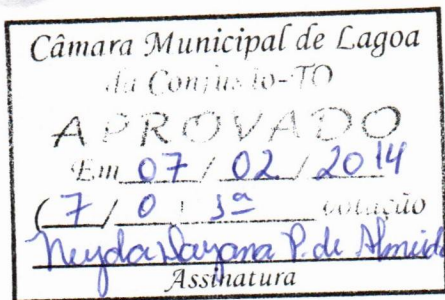 Câmara Municipal de Lagoa
da Confusão-TO
APROVADO
Em 07 / 02 / 2014
( 7 / 0 ) 1ª votação
Neyda Dayana P. de Almeida
Assinatura